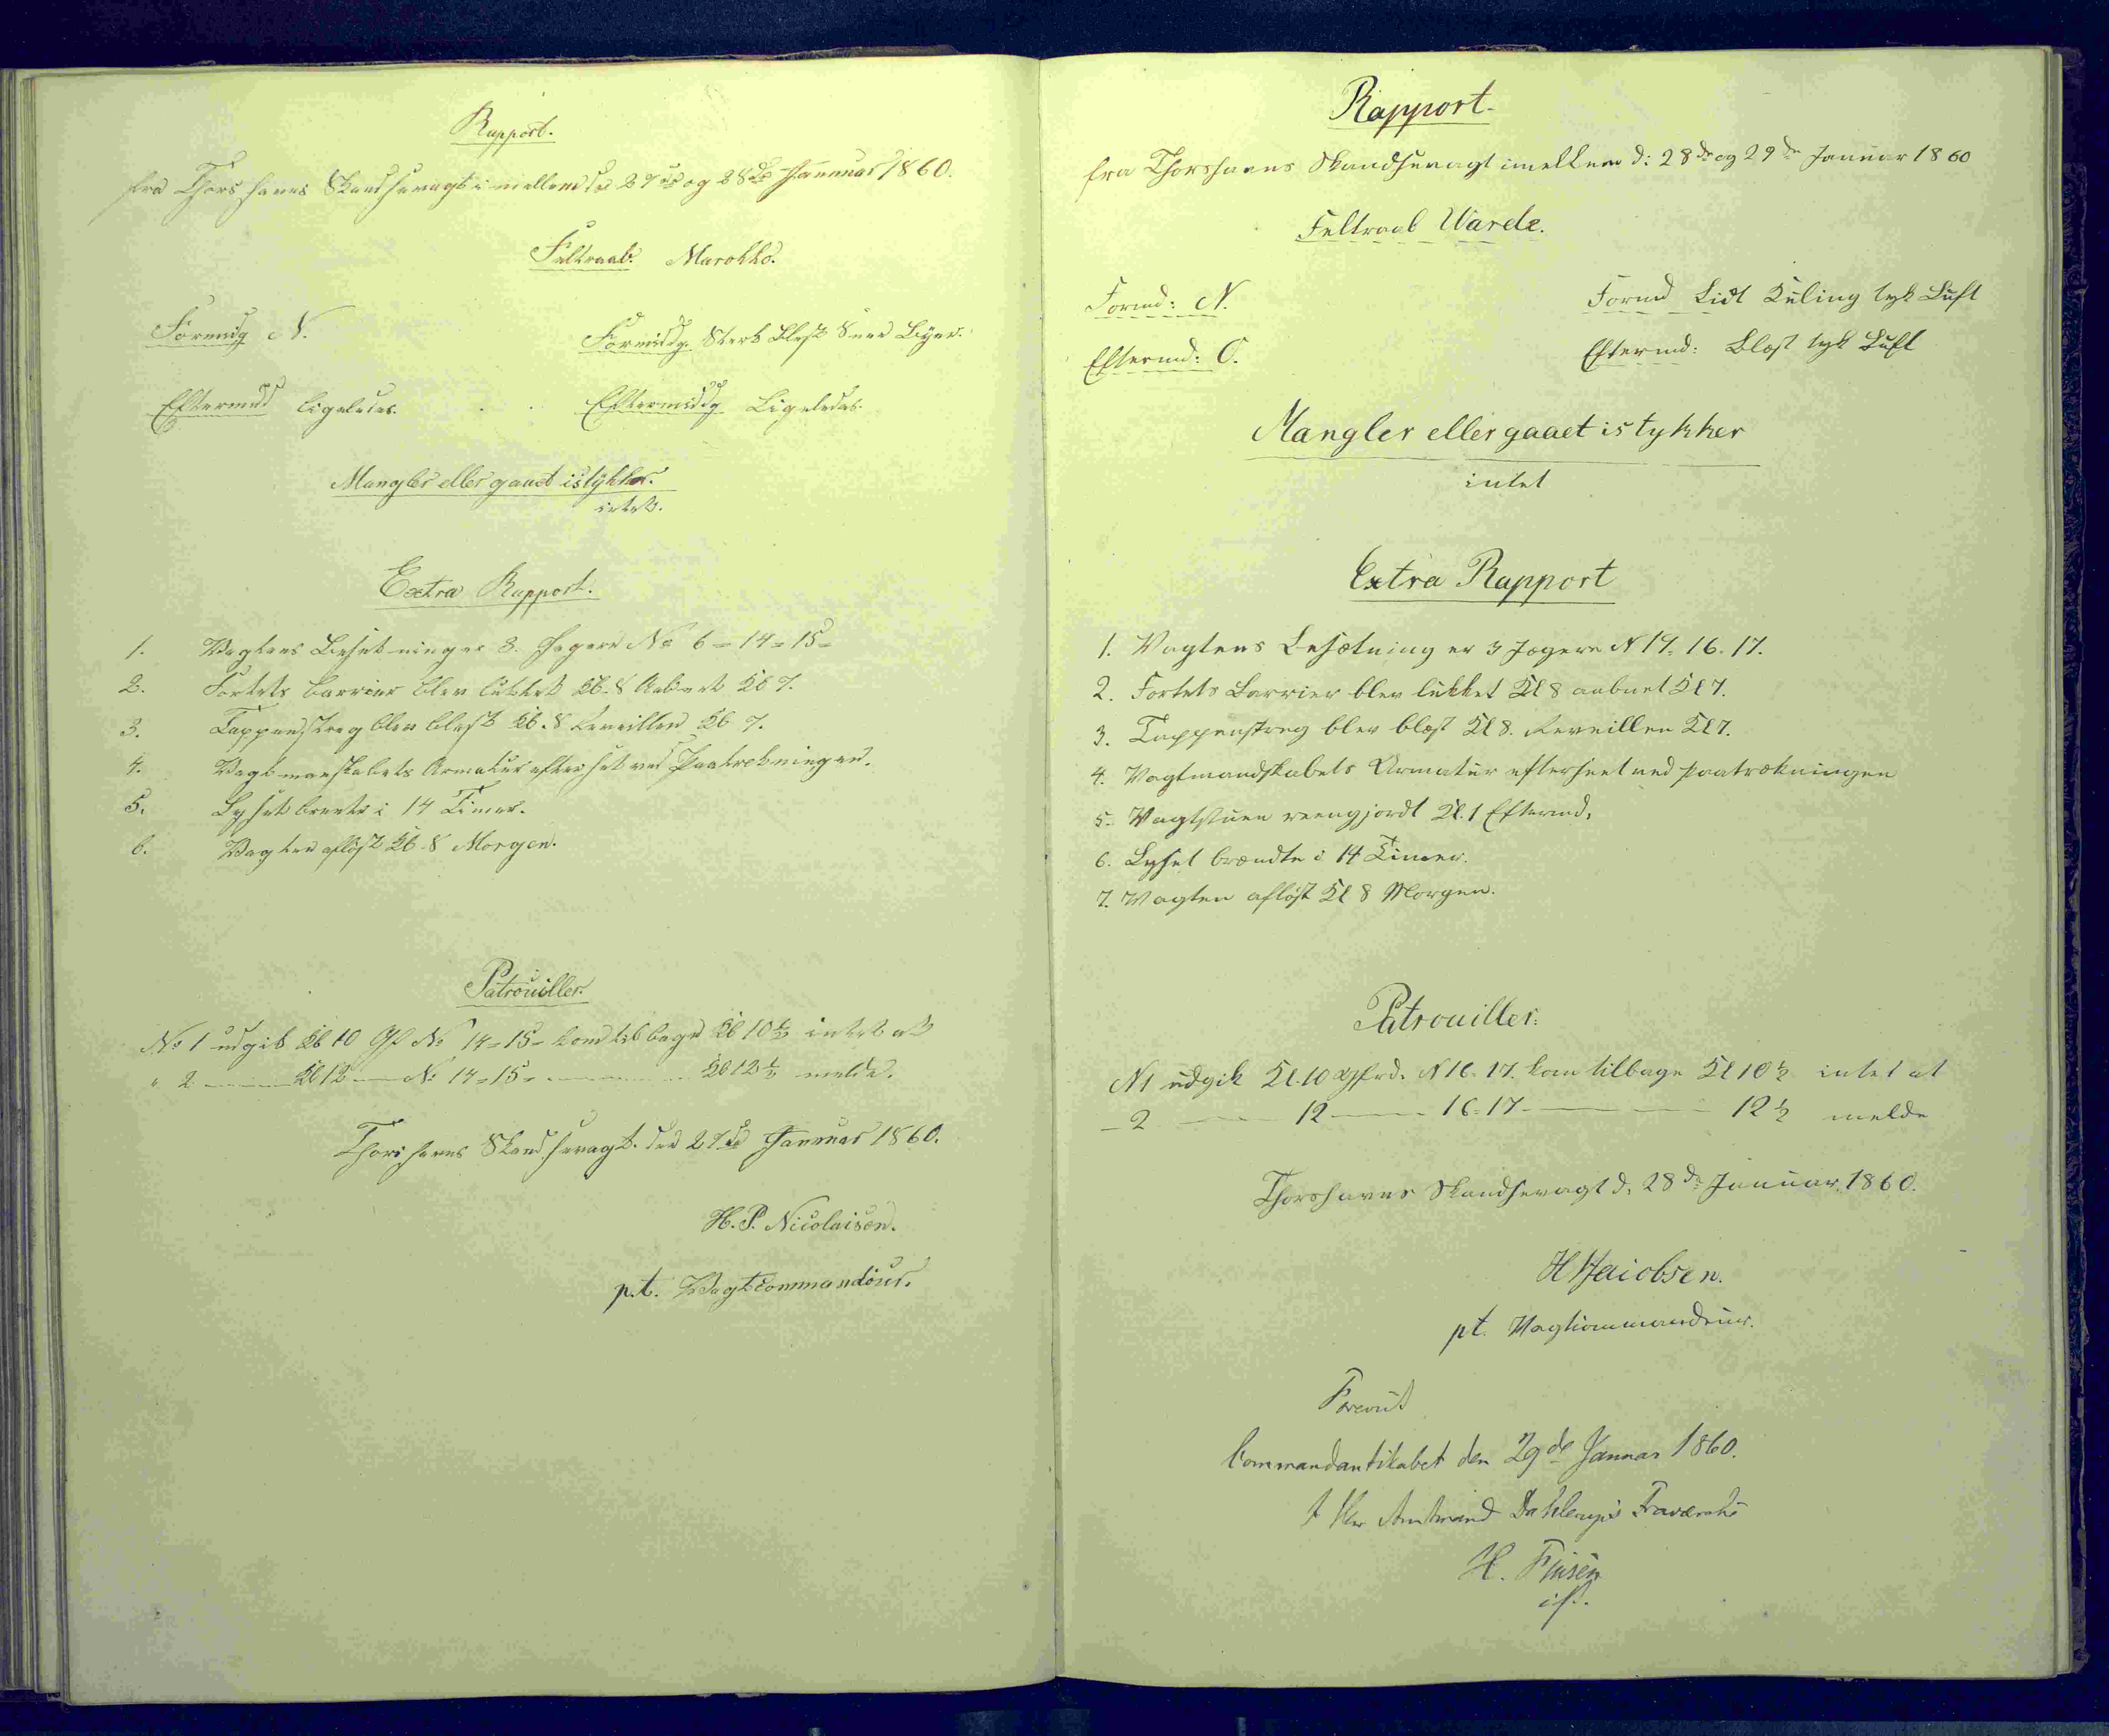 Rapport.
fra Thorshavns Skandsevagt imellem den 27de og 28de Januuar 1860.
Feltraab. Marokko.
Formidg N.
Formiddg. Sterk Blest Snee Byer.
Eftermidd ligeledes.
Eftermiddg Ligeledes.
Mangler eller gaaet istykker.
intet.
Extra Rapport.
1. Vagtens Besetninger 3. Jegere No 6 = 14 = 15 =
2. Fortets Barrier blev lukket Kl. 8 Aabnet Kl 7.
3. Tappenstreg blev blest Kl. 8 Reveillen Kl 7.
4. Vagtmanskabets Armatur efterset ved Paatrekningen.
5. Lyset brente i 14 Timer.
6. Vagten afløst Kl. 8 Morgen.
Patrouiller.
No 1 udgik Kl 10 Gf No 14 = 15 = kom tilbage Kl 10½ intet at
" 2 Kl 12 No 14 = 15 = Kl 12½ melde.
Thorshavns Skandsevagt. den 27de Januuar 1860.
H. P. Nicolaisen.
p.t. Vagtcommandeur.
Rapport.
fra Thorshavns Skandsevagt imellem d: 28de og 29de Januar 1860
Feltraab Warde.
Formd: N.
Formd Lidt Kuling tyk Luft
Eftermd: O.
Eftermd: Blæst tyk Luft
Mangler eller gaaet istykker
intet
Extra Rapport
1. Vagtens Besætning er 3 Jægere N 14. 16. 17.
2. Fortets Barrier blev lukket Kl 8 aabnet Kl 7.
3. Tappenstreg blev blæst Kl 8. Reveillen Kl 7.
4. Vagtmandskabets Armatur efterseet ved paatrækningen
5. Vagtstuen reengjordt Kl. 1 Eftermd.
6. Lyset brændte i 14 Timer.
7. Vagten afløst Kl 8 Morgen.
Patrouiller:
N 1 udgik Kl. 10 Gfrd. N 16. 17. kom tilbage Kl 10½ intet at
- 2 12 16. 17 12½ melde
Thorshavns Skandsevagt d. 28de Januar. 1860.
H Jacobsen.
pt. Vagtcommandeur.
Foreviist
Commandantskabet den 29de Januar 1860.
I Hr Amtmand Dahlerups Fraværelse
H. Finsen
cst.